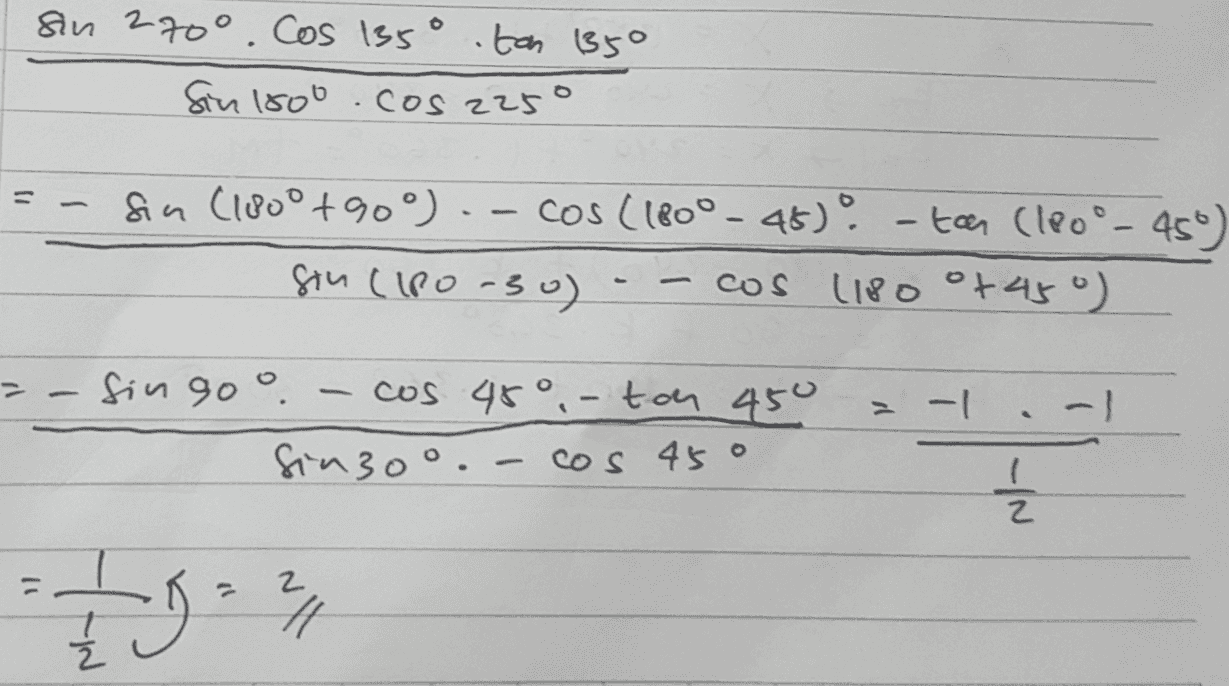 sin 270° . cos 135° . tan 135°
sin 150° . cos 225°
= - sin (180° + 90°) . - cos (180° - 45)° . - tan (180° - 45°)
sin (180 - 30) . - cos (180° + 45°)
= - sin 90° . - cos 45° . - tan 45° = -1 . -1
sin 30° . - cos 45° 1
2
= 1 = 2 //
1
2